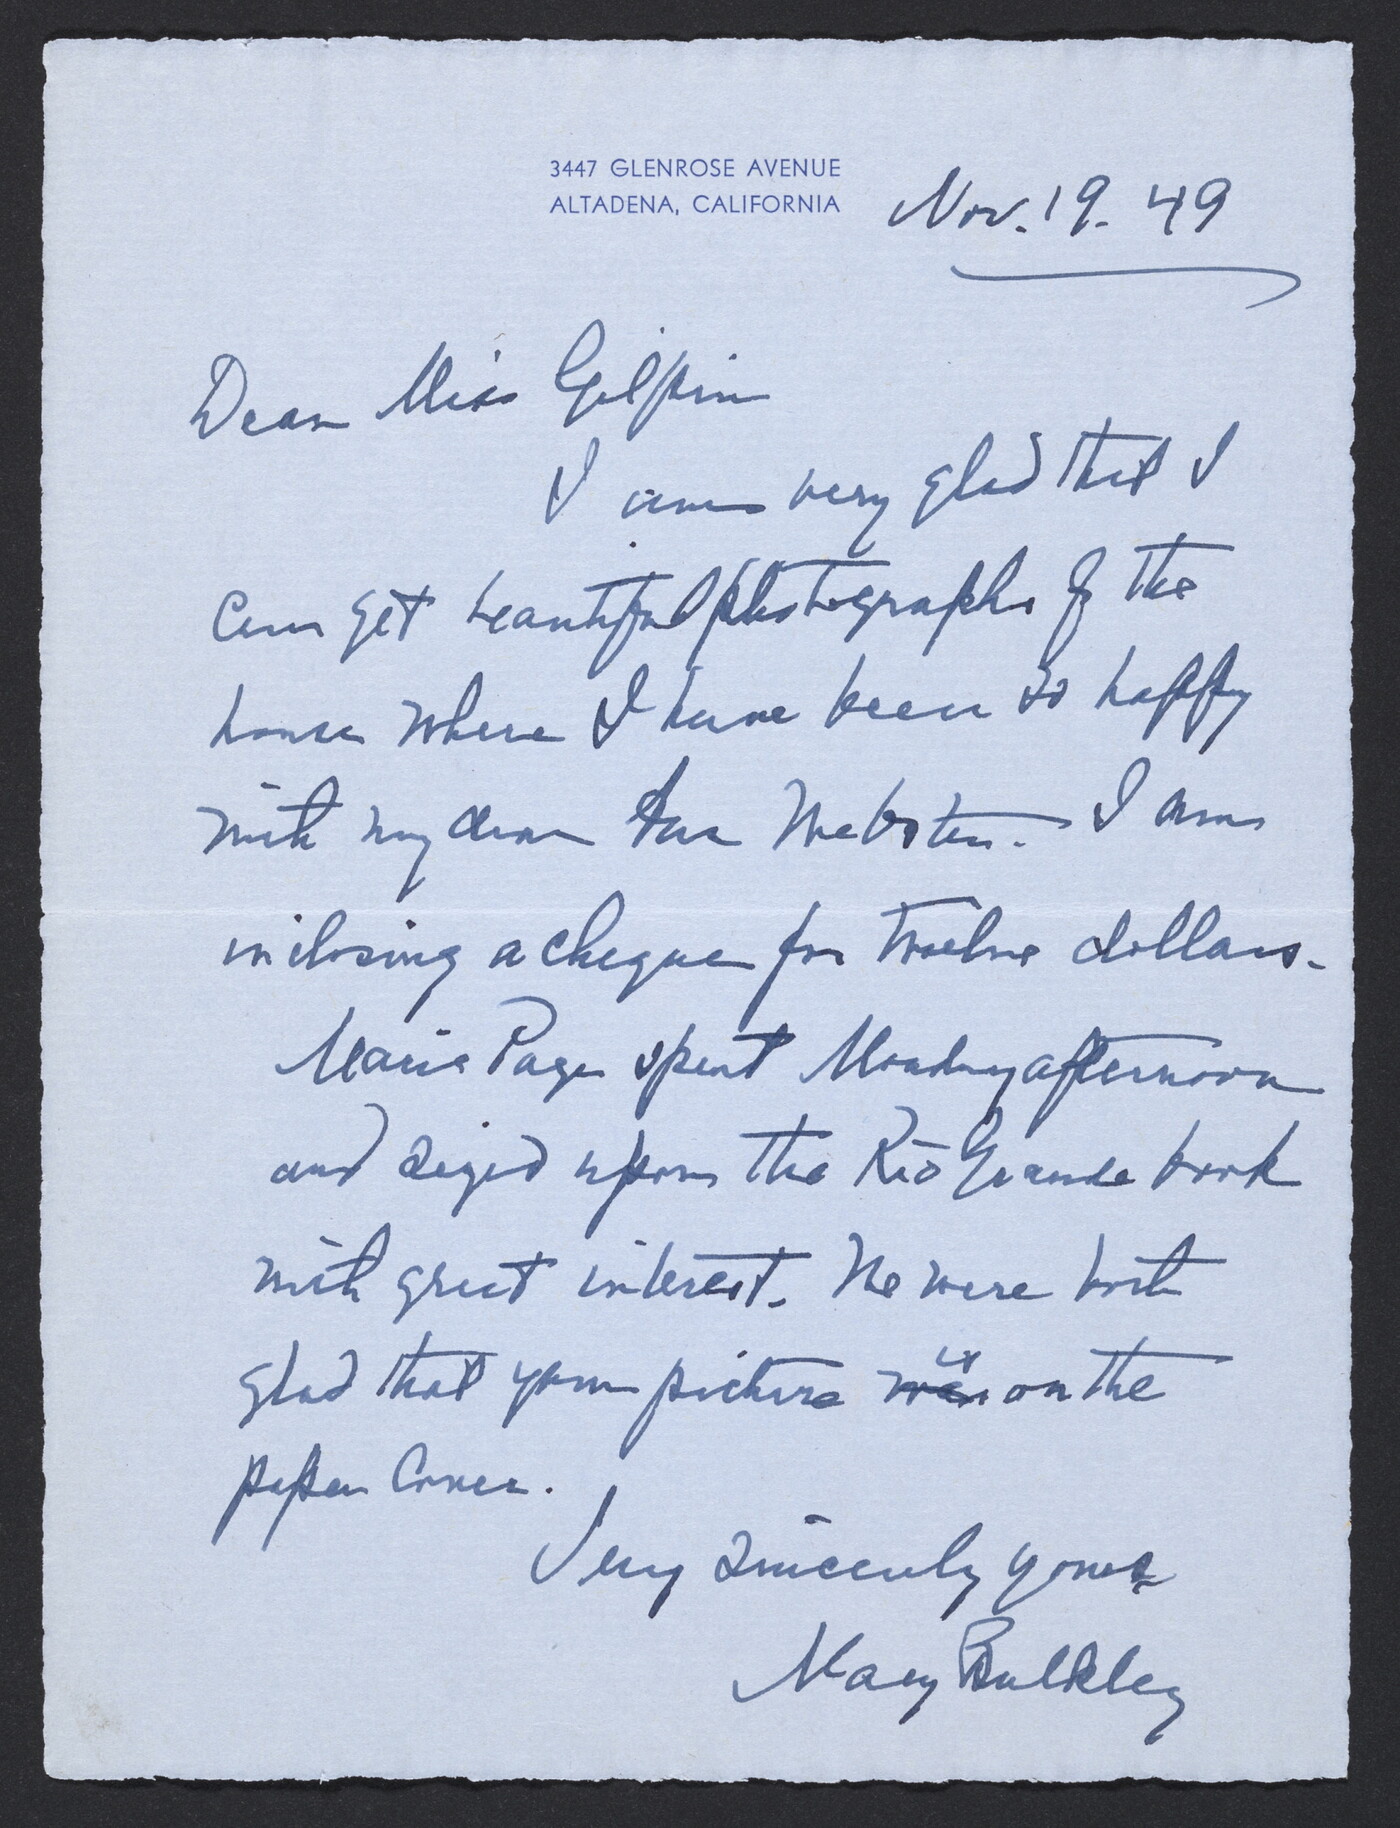 3447 GLENROSE AVENUE
ALTADENA, CALIFORNIA
Nov. 19. 49
Dear Miss Gilpin
I am very glad that I
can get beautiful photographs of the
house where I have been so happy
with my dear Webster. I am
inclosing a cheque for twelve dollars.
Maria Page spent Monday afternoon
and seized upon the Rio Grande book
with great interest. We were both
glad that your picture was is on the
paper Cover.
Very sincerely yours
Mary Bulkley